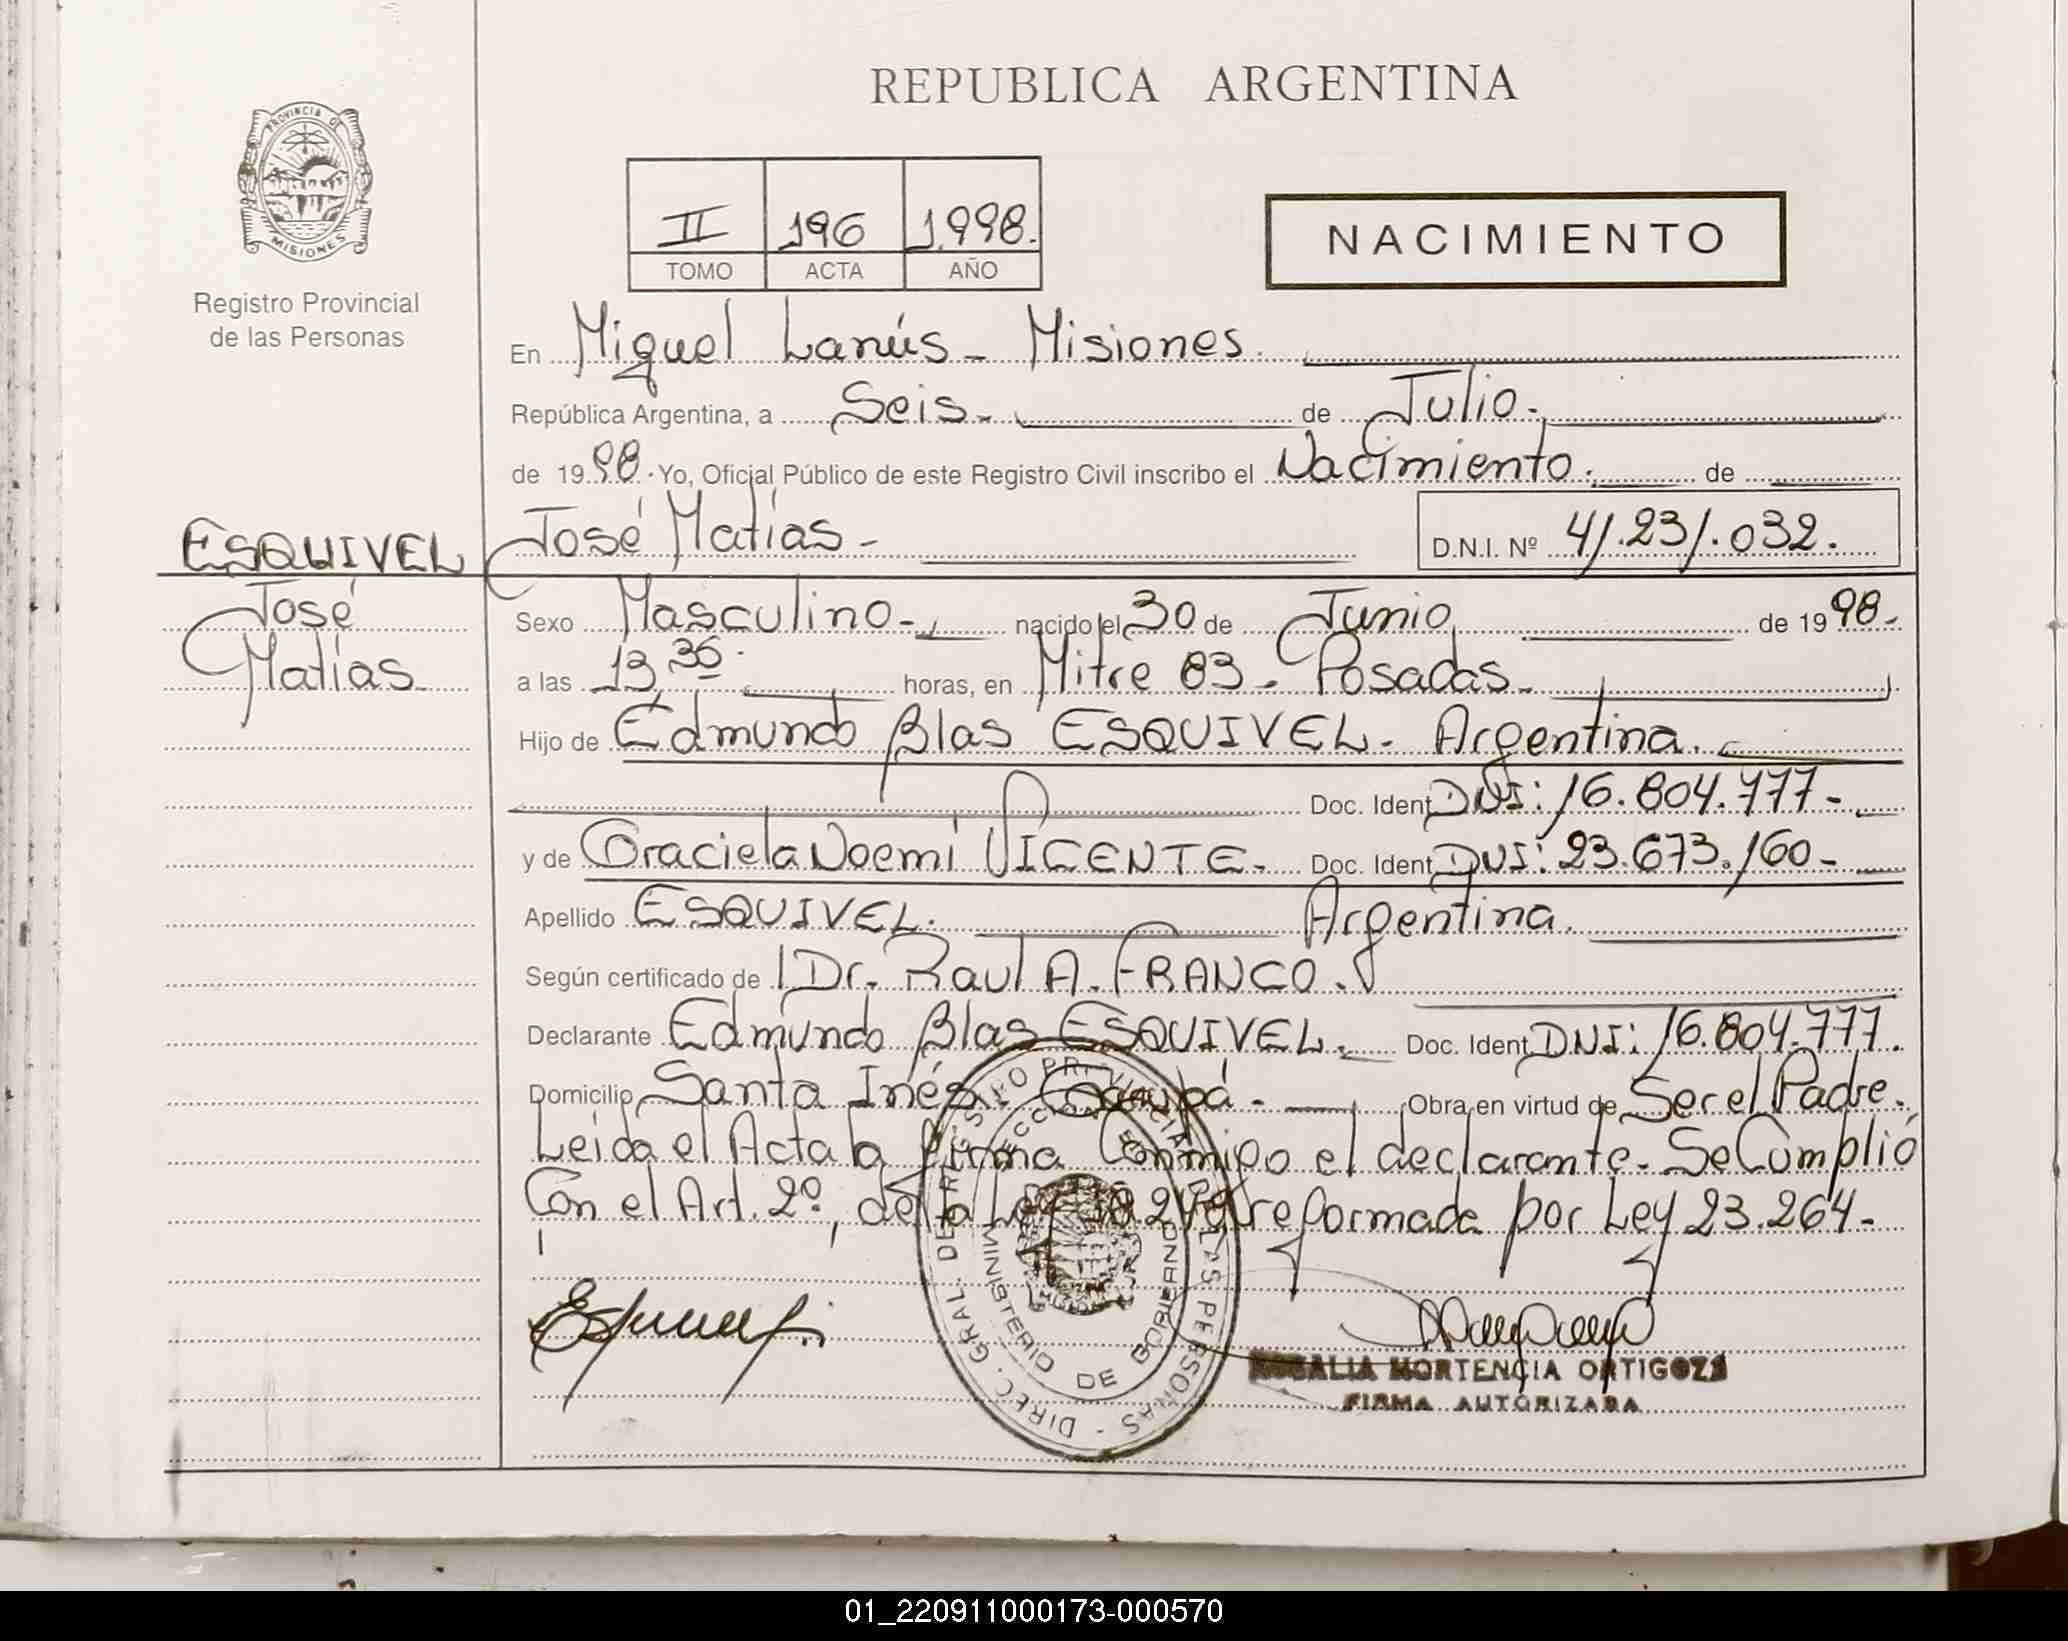 REPUBLICA ARGENTINA
PROVINCIA DE
MISIONES
Registro Provincial
de las Personas
II 196 1.998.
TOMO ACTA AÑO
NACIMIENTO
En Miguel Lanús - Misiones.
República Argentina, a Seis. de Julio.
de 1998. Yo, Oficial Público de este Registro Civil inscribo el Nacimiento. de
José Matías - D.N.I. Nº 41.231.032.
ESQUIVEL
José
Matías
Sexo Masculino - nacido el 30 de Junio de 1998.
a las 13,35 horas, en Mitre 83 - Posadas -
Hijo de Edmundo Blas ESQUIVEL. Argentina.
Doc. Ident DNI: 16.804.777 -
y de Graciela Noemí VICENTE - Doc. Ident DNI: 23.673.160 -
Apellido ESQUIVEL. Argentina.
Según certificado de Dr. Raul A. FRANCO.
Declarante Edmundo Blas ESQUIVEL. Doc. Ident DNI: 16.804.777.
Domicilio Santa Inés. Garupá - Obra en virtud de Ser el Padre.
Leida el Acta la firma Conmigo el declarante. Se Cumplió
Con el Art. 2º, de la Ley 18.248 reformada por Ley 23.264 -
DIREC. GRAL. DE REGISTRO PROVINCIAL DE LAS PERSONAS -
MINISTERIO DE GOBIERNO
ROSALIA HORTENCIA ORTIGOZA
FIRMA AUTORIZADA
01_220911000173-000570